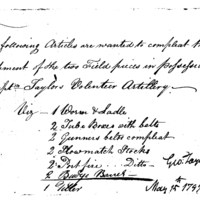 following Articles are wanted to compleat th
pment of the two Field pieces in possession
Capt.n Taylors Volentier Artillery.
Viz 1 Worm & Ladle
2 Tube Boxes with belts
2 Gunners belts compleat
2 Slowmatch Stocks
2 Portfire Ditto
2 Budge Barrels
1 Geo. Tay
May 15th 179